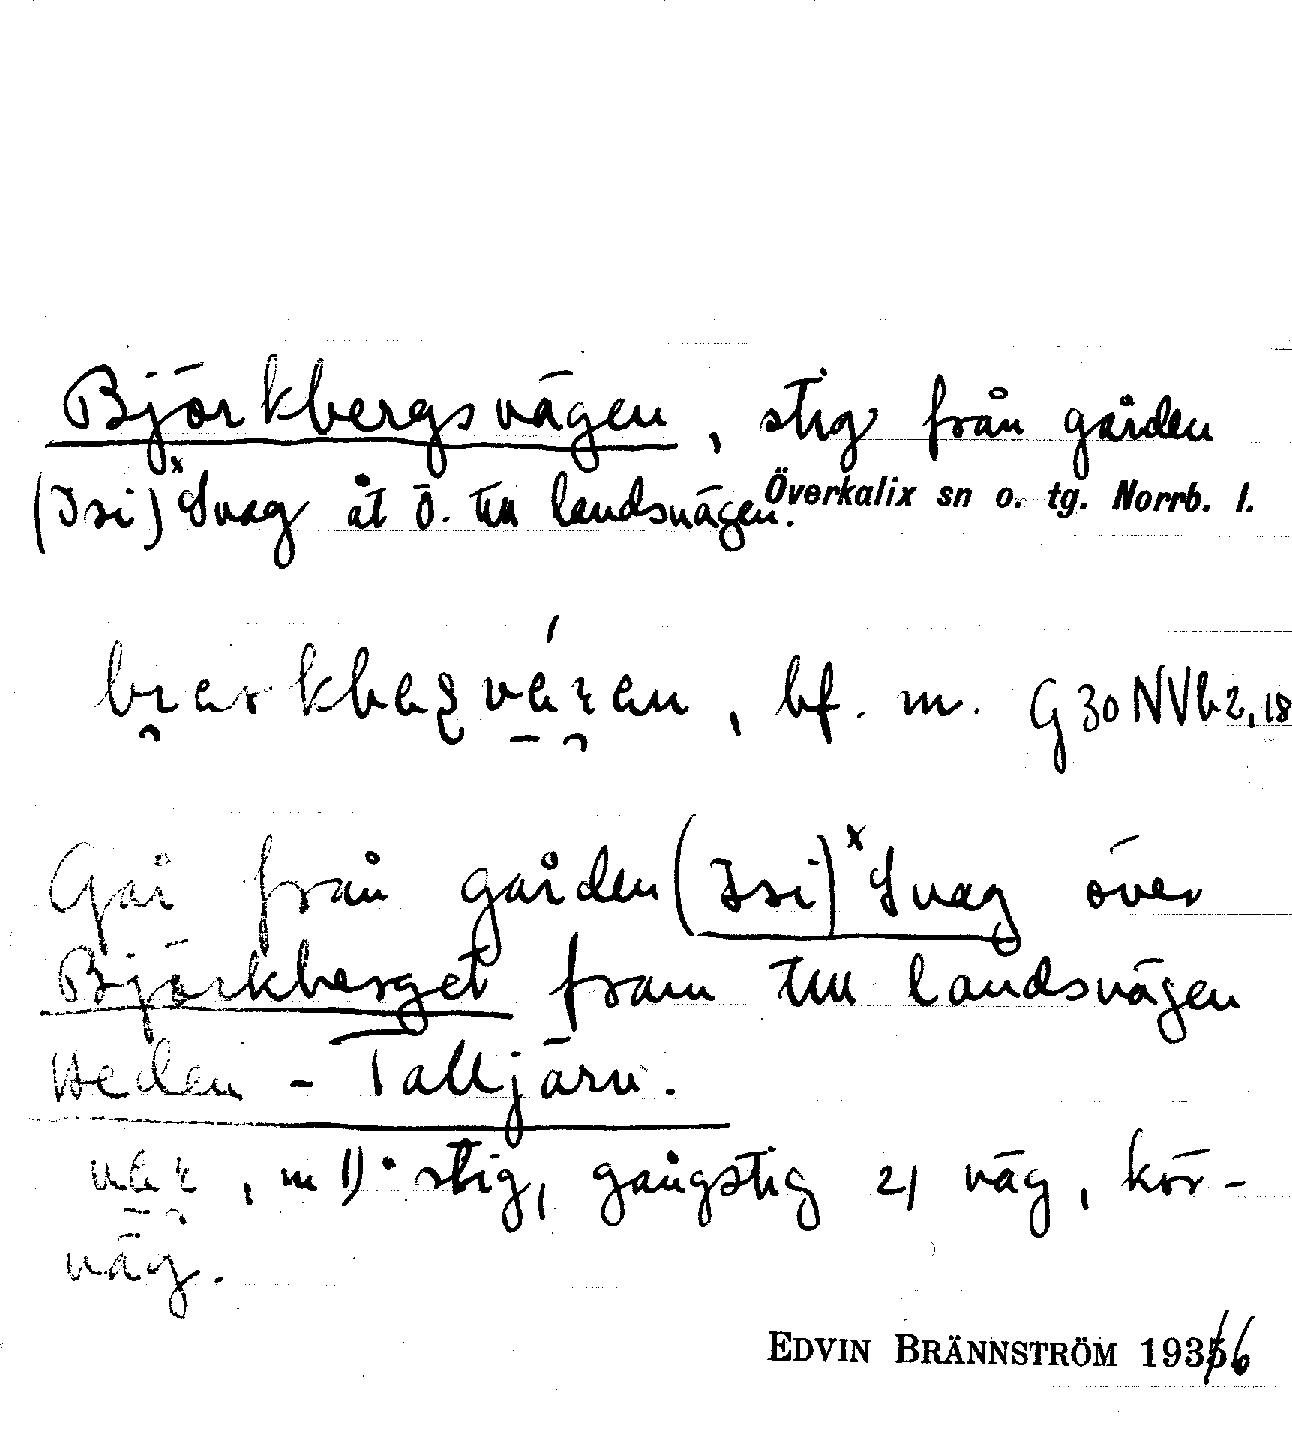 Björkbergsvägen, stig från gården
(Isi) ˣSvag åt Ö. till landsvägen.
Överkalix sn o. tg. Norrb. l.
, bf. m. G30NVb2,18
Går från gården (Isi) ˣSvag över
Björkberget fram till landsvägen
Heden - Talljärv.
, m 1) stig, gångstig 2) väg, kör-
väg.
EDVIN BRÄNNSTRÖM 1936